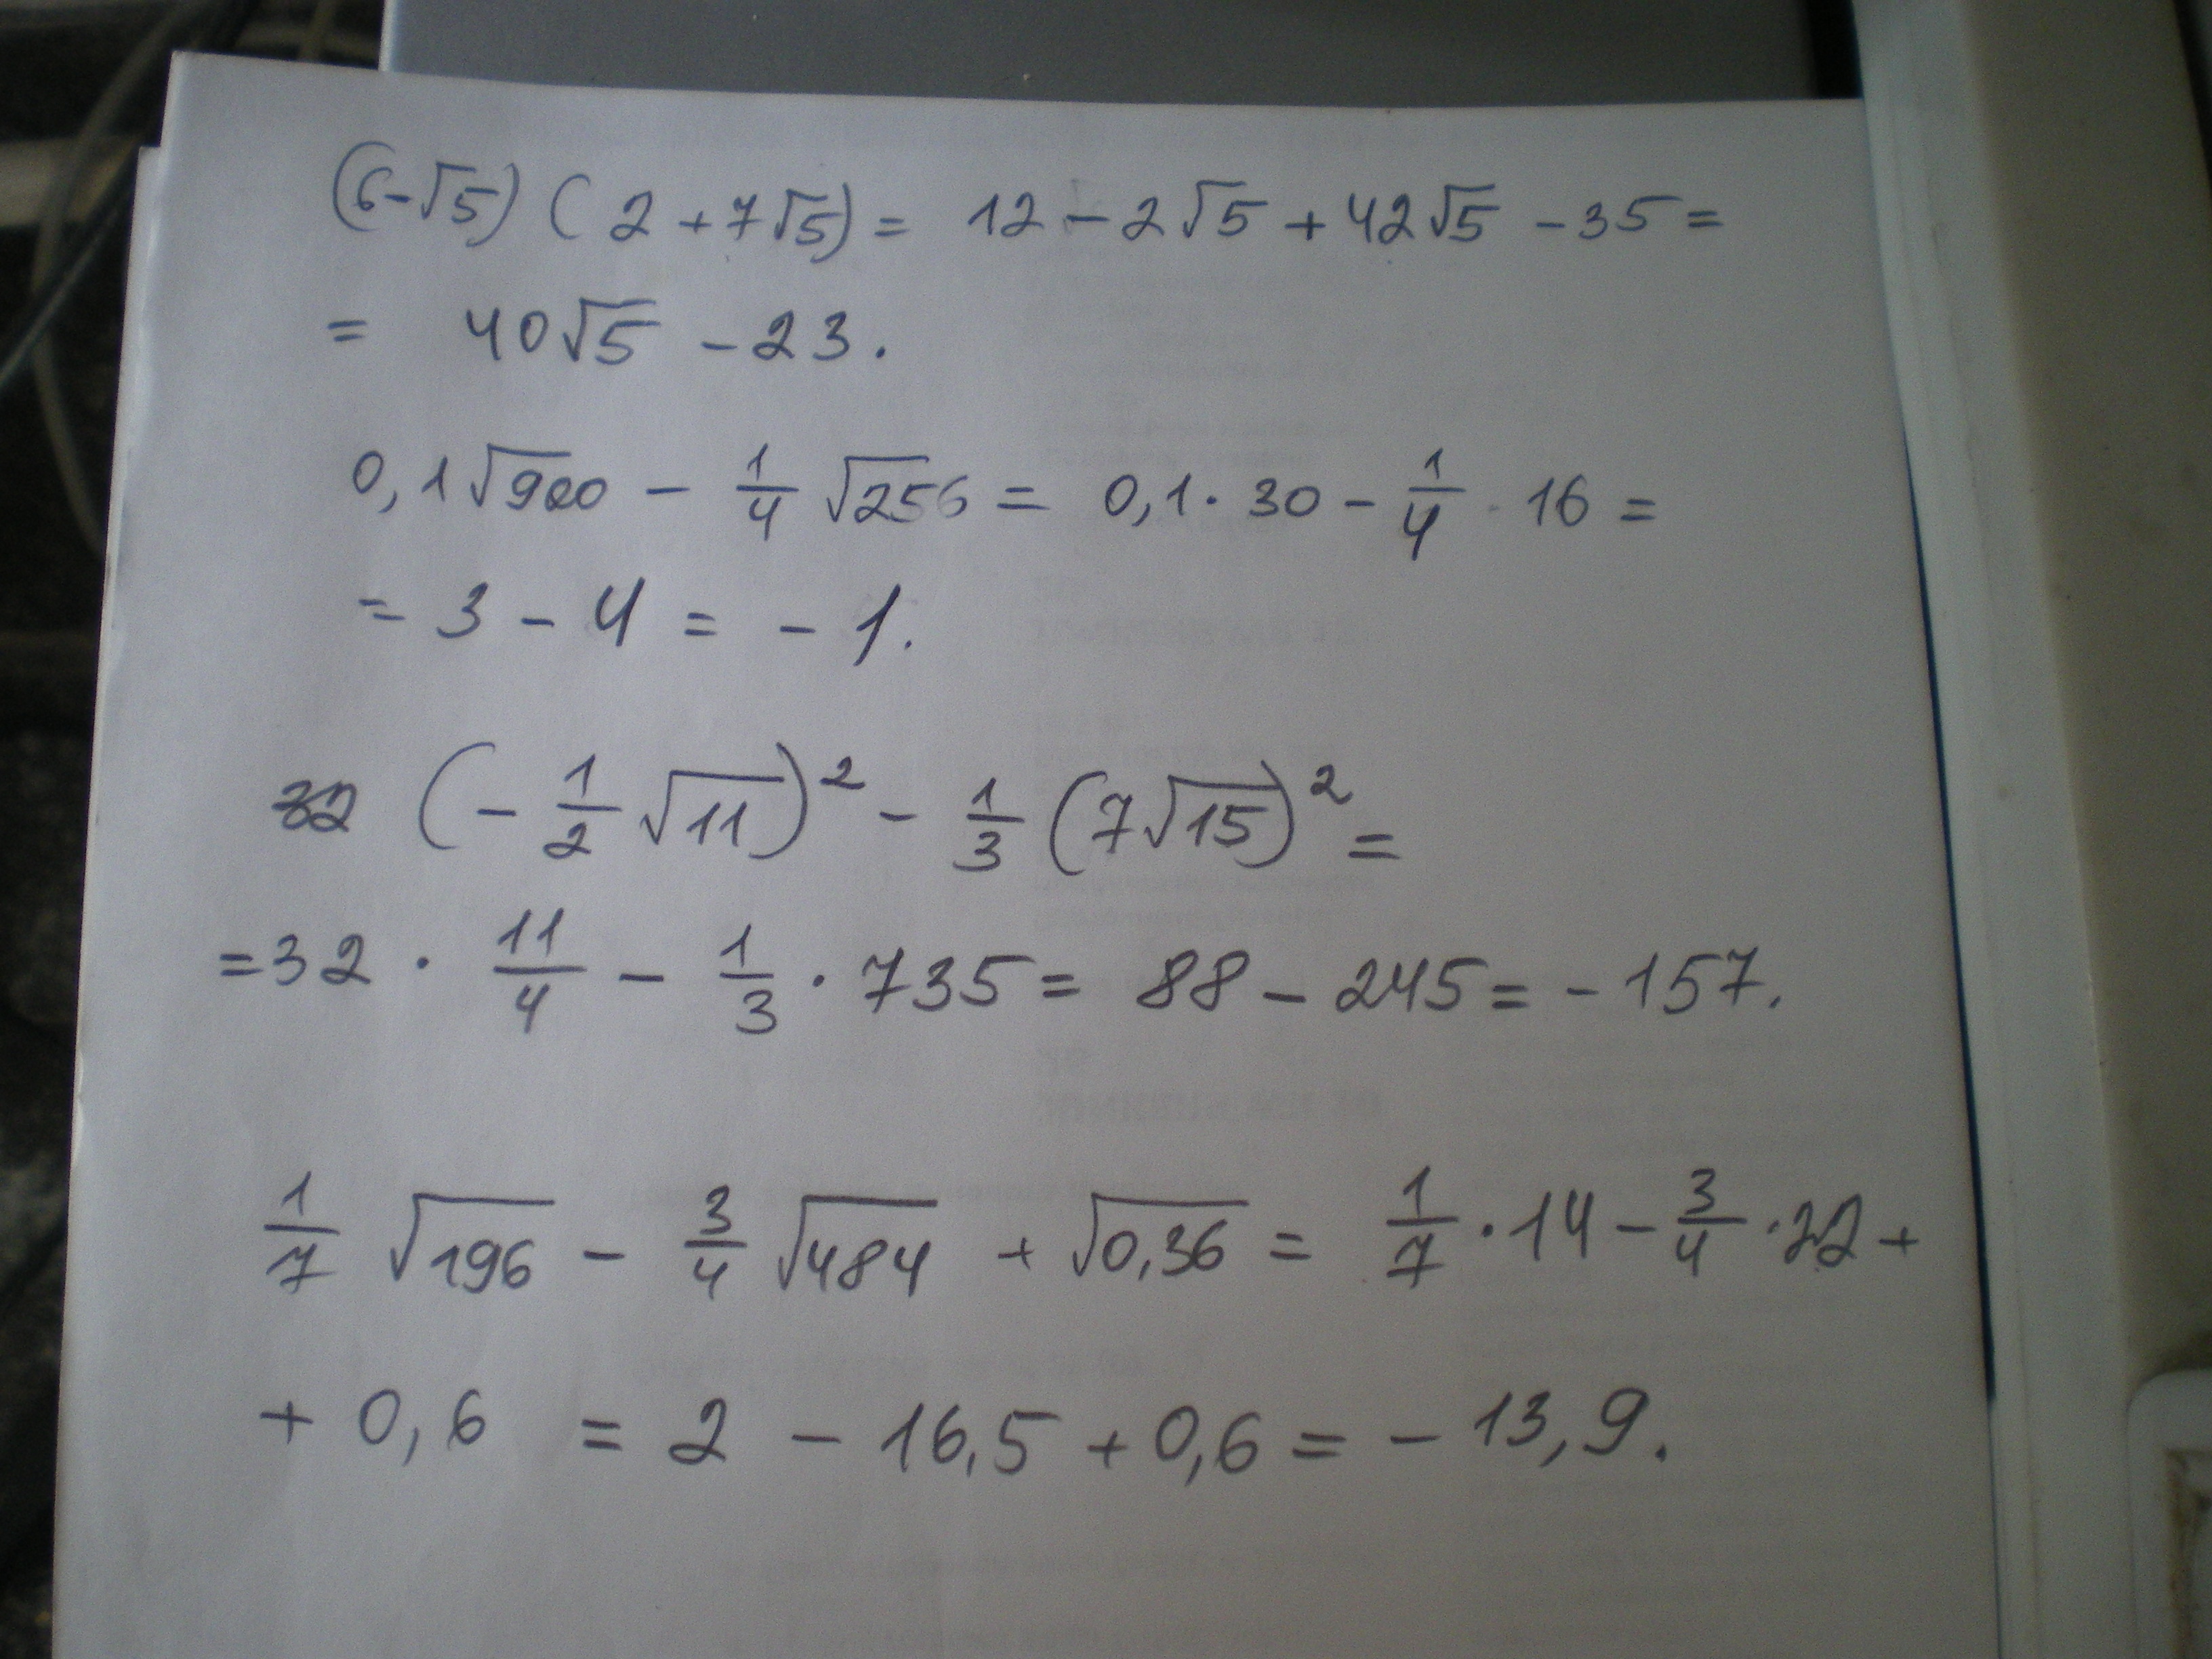 (6-√5) (2 + 7√5) = 12 - 2√5 + 42√5 - 35 =
= 40√5 - 23.
0,1√900 - 1/4 √256 = 0,1 · 30 - 1/4 · 16 =
= 3 - 4 = - 1.
32 (- 1/2 √11)² - 1/3 (7√15)² =
= 32 · 11/4 - 1/3 · 735 = 88 - 245 = - 157.
1/7 √196 - 3/4 √484 + √0,36 = 1/7 · 14 - 3/4 · 22 +
+ 0,6 = 2 - 16,5 + 0,6 = - 13,9.